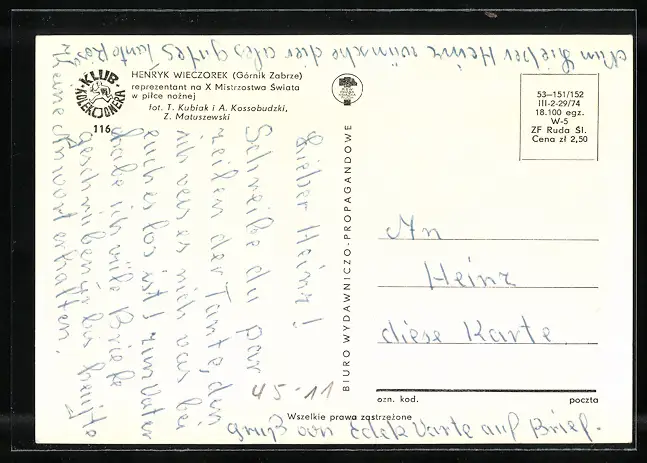 KLUB KOLEKCJONERA
116
HENRYK WIECZOREK (Górnik Zabrze)
reprezentant na X Mistrzostwa Świata
w piłce nożnej
fot. T. Kubiak i A. Kossobudzki,
Z. Matuszewski
BIURO WYDAWNICZO-PROPAGANDOWE
53-151/152
III-2-29/74
18.100 egz.
W-5
ZF Ruda Śl.
Cena zł 2,50
An
Heinz
diese Karte
ozn. kod.
poczta
Wszelkie prawa zastrzeżone
45-11
Lieber Heinz!
Schreibe du par
zeilen der Tante, den
ich weis es nich was bei
euch los ist! zum Vater
habe ich viele Briefe
geschriben, bis heute
keine Antwort erhalten.
Nun Lieber Heinz wünsche dier ales gutes Tante Rosa
Gruß von Edek Warte auf Brief.